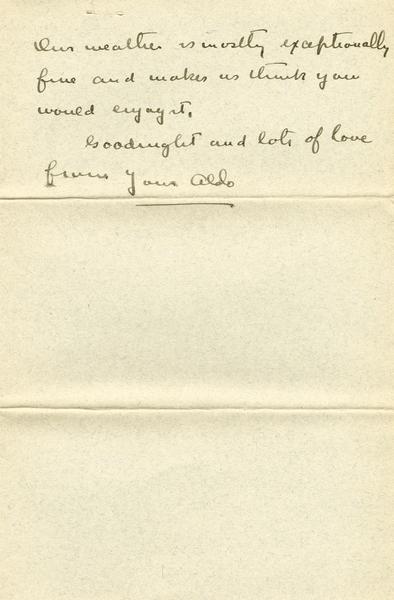 Our weather is mostly exceptionally
fine and makes us think you
would enjoy it.
Goodnight and lots of love
from your Aldo